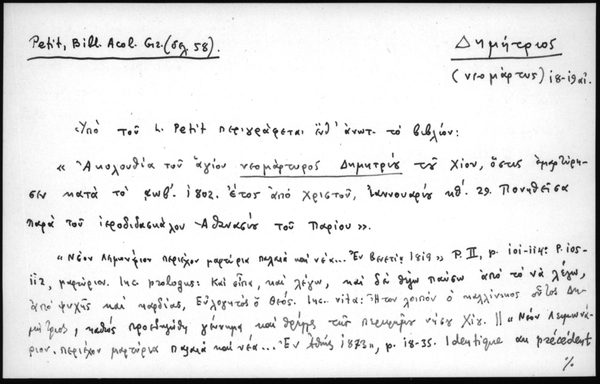 Petit, Bibl. Acol. Gr. (σελ. 58). Δημήτριος
(νεομάρτυς) 18-19 αἰ.
Ὑπὸ τοῦ L. Petit περιγράφεται ἔνθ' ἀνωτ. τὸ βιβλίον:
« Ἀκολουθία τοῦ ἁγίου νεομάρτυρος Δημητρίου τοῦ Χίου, ὅστις ἐμαρτύρη-
σεν κατὰ τὸ ͵αωβʹ. 1802. ἔτος ἀπὸ Χριστοῦ, Ἰαννουαρίου κθʹ. 29. Πονηθεῖσα
παρὰ τοῦ ἱεροδιδασκάλου Ἀθανασίου τοῦ Παρίου ».
« Νέον Λειμωνάριον περιέχον μαρτύρια παλαιὰ καὶ νέα... Ἐν Βενετίᾳ 1819 » P. II, p. 101-114: P. 105-
112, μαρτύριον. Inc. prologus: Καὶ εἶπα, καὶ λέγω, καὶ δὲν θέλω παύσω ἀπὸ τὸ νὰ λέγω,
ἀπὸ ψυχῆς καὶ καρδίας, Εὐλογητὸς ὁ Θεός. Inc. vita: Ἦτον λοιπὸν ὁ καλλίνικος οὗτος Δη-
μήτριος, καθὼς προεδηλώθη γέννημα καὶ θρέμμα τῆς περιφήμου νήσου Χίου. || « Νέον Λειμωνά-
ριον περιέχον μαρτύρια παλαιὰ καὶ νέα... Ἐν Ἀθήναις 1873 », p. 18-35. Identique au précédent
%